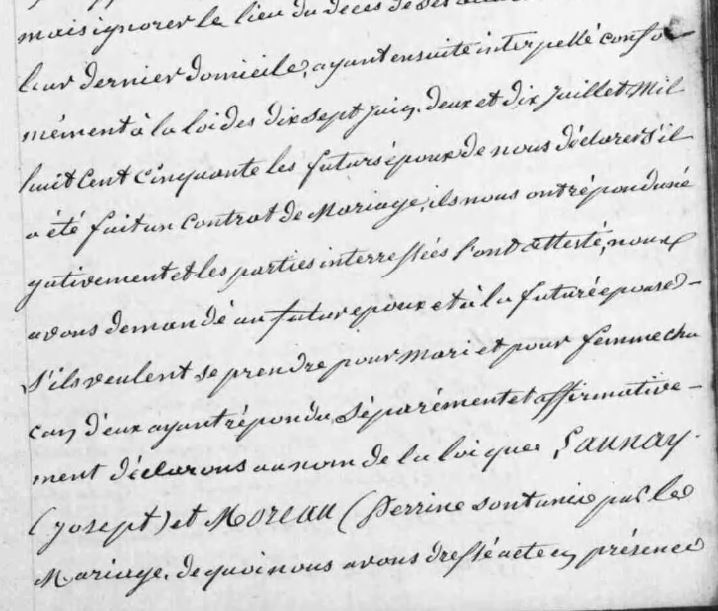 mais ignorer le lieu du deces de ses
leur dernier domicile, ayant ensuite interpellé confor
mément à la loi des dix sept juin, deux et dix Juillet Mil
huit cent cinquante les futurs époux de nous déclarer s'il
a été fait un contrat de Mariage, ils nous ont répondu né
gativement et les parties interressées l'ont attesté, nous
avons demandé au futur epoux et à la future epouse -
S'ils veulent se prendre pour mari et pour femme cha
cun d'eux ayant répondu séparément et affirmative -
ment déclarons au nom de la loi que Launay
(Josept) et Moreau (Perrine sont unis par le
Mariage, de quoi nous avons dressé acte en présence